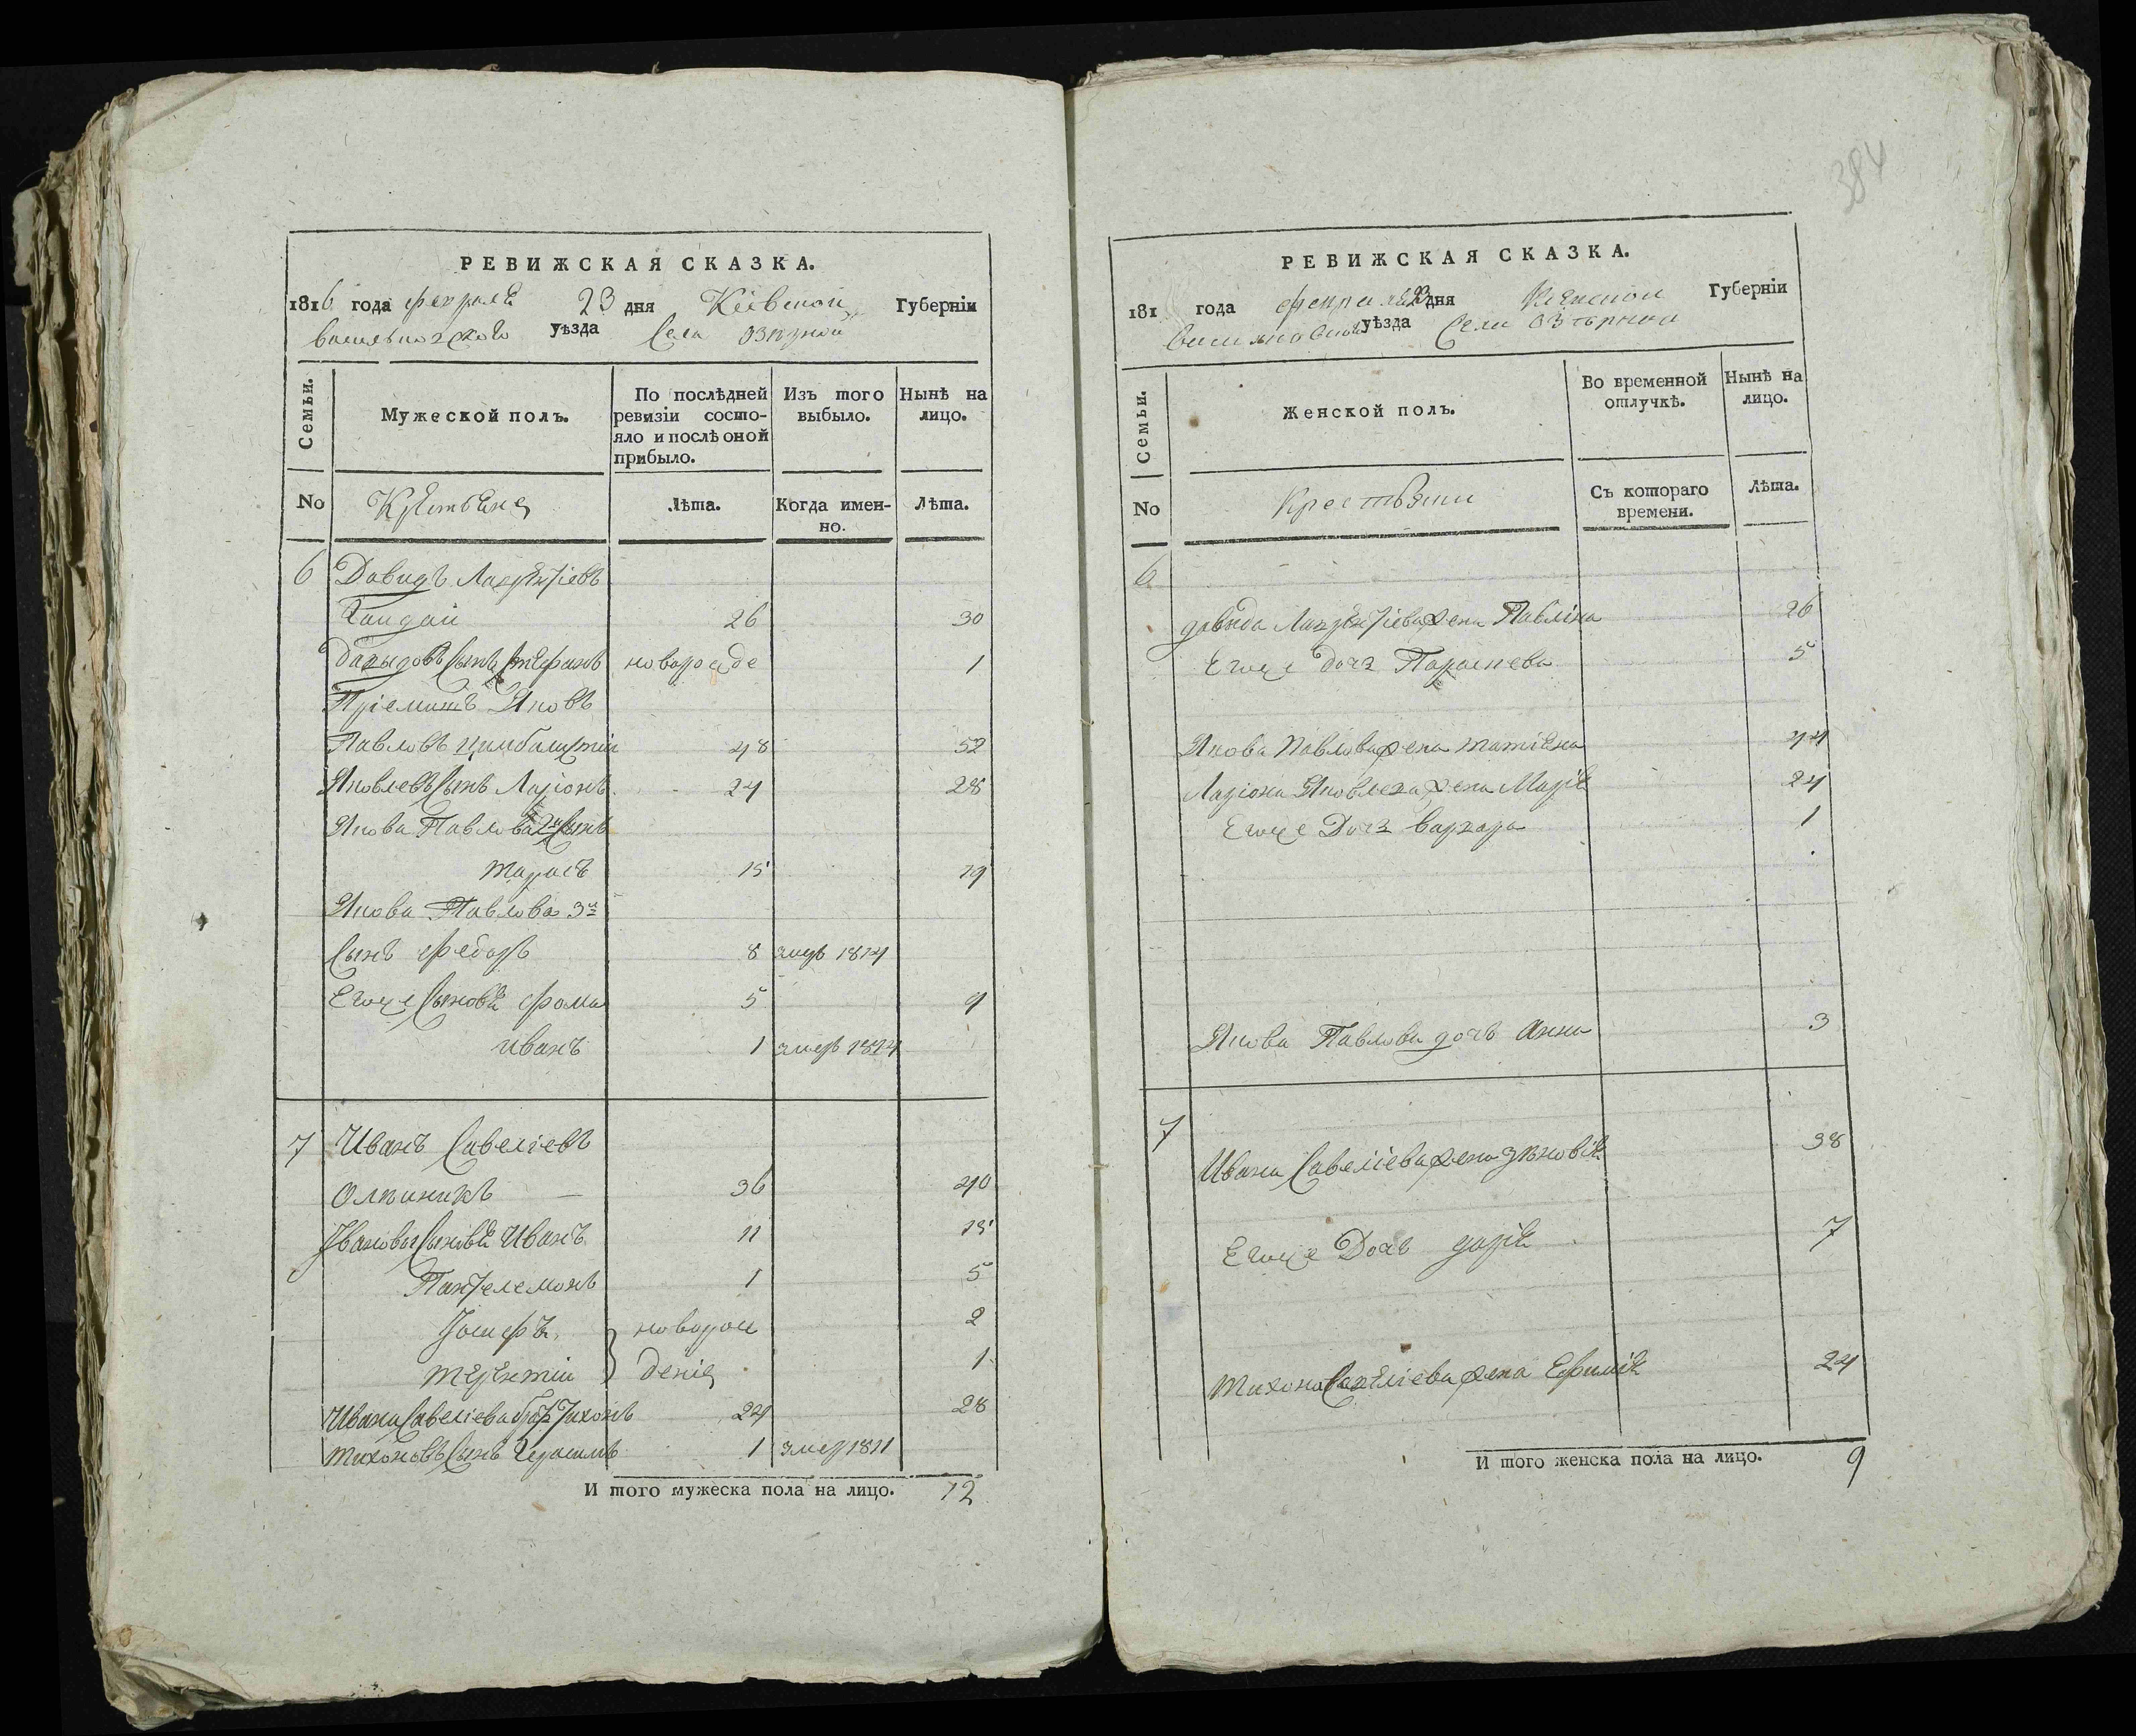 РЕВИЖСКАЯ СКАЗКА.
1816 года февраля 23 дня Кіевской Губерніи
васильковского уѣзда Села озѣрной
Семьи.
Мужеской полъ.
По послѣдней ревизіи состояло и послѣ оной прибыло.
Изъ того выбыло.
Нынѣ на лицо.
No
Крестьяне
Лѣта.
Когда имен-но.
Лѣта.
6 Давидъ Лаврентіевъ
26 30
Давыдовъ Сынъ Стефанъ новорожде 1
Пріемышъ Яковъ
Павловъ 48 52
Яковлевъ Сынъ Ларіонъ 24 28
Якова Павлова 2й Сынъ
Тарасъ 15 19
Якова Павлова 3й
Сынъ Федоръ 8 умеръ 1814
Егоже Сыновя Фома 5 9
иванъ 1 умеръ 1814
7 Иванъ Савеліевъ
Олѣиникъ 36 40
Івановы Сыновя Иванъ 11 15
Пантелемонъ 1 5
Іосифъ новорож 2
терентіи денія 1
Ивана Савеліева братъ Тихонъ 24 28
Тихоновъ Сынъ Герасимъ 1 умер 1811
И того мужеска пола на лицо. 12
384
РЕВИЖСКАЯ СКАЗКА.
181 года февраля 23 дня Кіевской Губерніи
васильковског уѣзда Села озѣрной
Семьи.
Женской полъ.
Во временной отлучкѣ.
Нынѣ на лицо.
No
Крестьяни
Съ котораго времени.
Лѣта.
6
давида Лаврентіева жена Павліна 26
Егоже Доч Параскева 5
Якова Павлова жена татіяна 44
Ларіона Яковлева жена Марія 24
Егоже Доч варвара 1
Якова Павлова дочь Анна 3
7
Ивана Савеліева жена зѣновія 38
Егоже Дочь дарія 7
Тихона Савеліева жена Ефимія 24
И того женска пола на лицо. 9